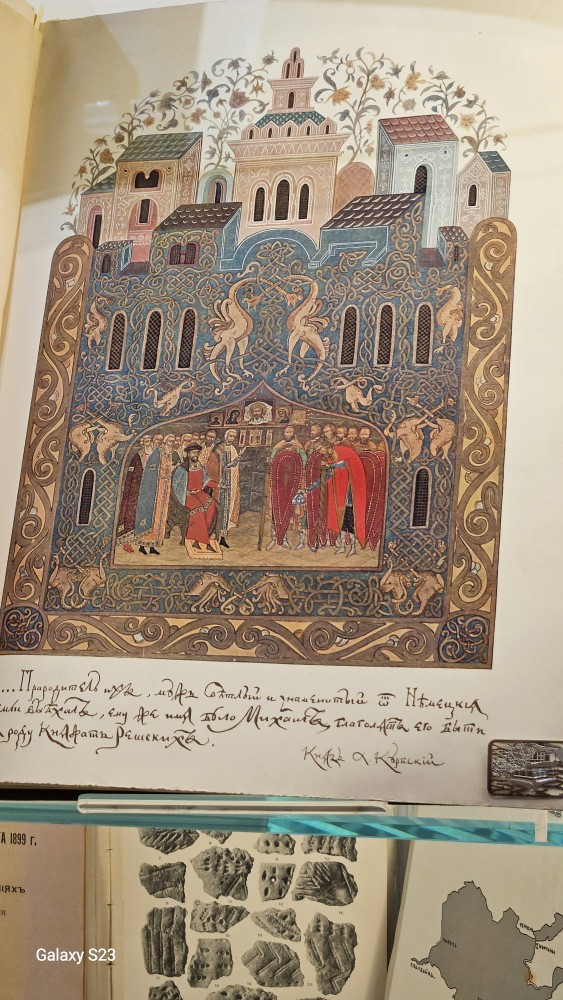 ...Прародитель ихъ, мужъ свѣтлый и знаменитый ѿ Нѣмецкія
земли выѣхалъ, ему же имя было Михаилъ, глаголятъ его быти
роду Княжатъ Решскихъ.
Князь А Курбскій
ТА 1899 г.
ЦІЯХЪ
Galaxy S23